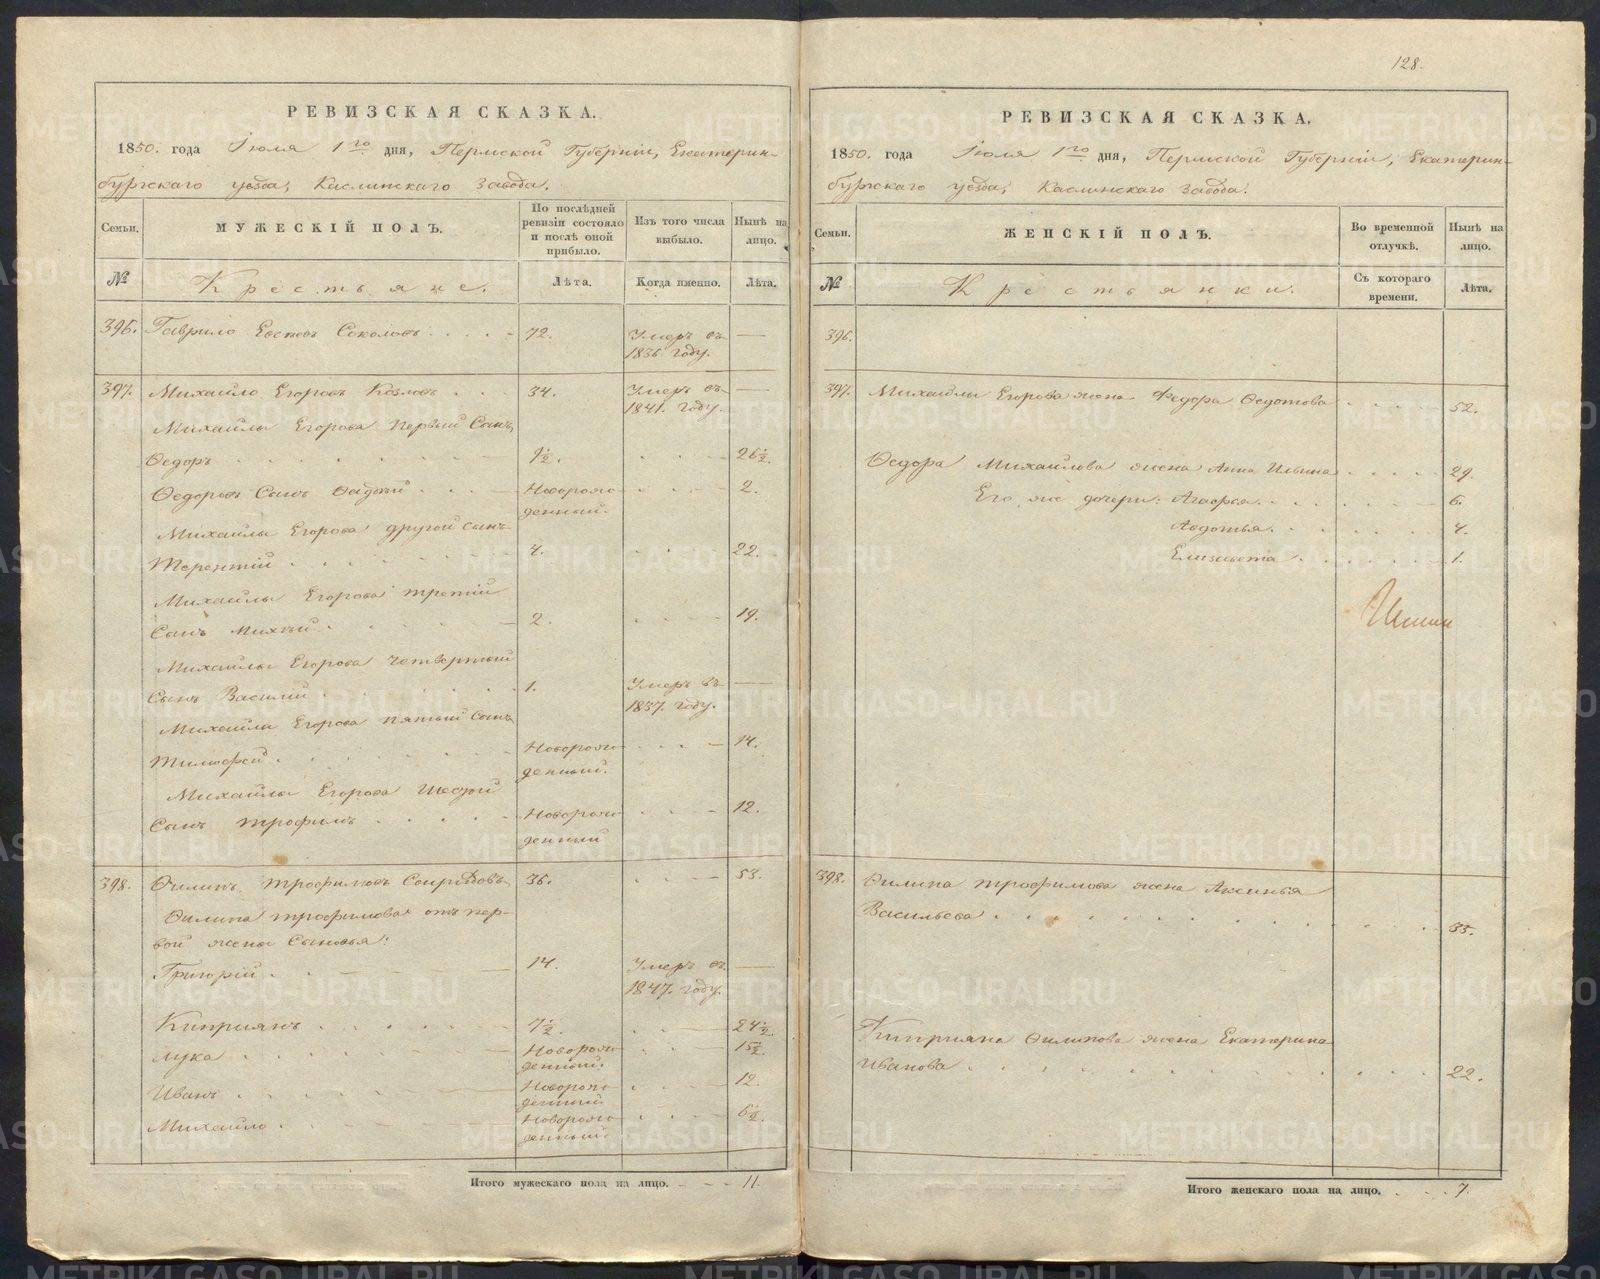 128.
РЕВИЗСКАЯ СКАЗКА.
1850. года Іюля 1го дня, Пермской Губерніи, Екатерин-
бургскаго уезда, Каслинскаго завода.
Семьи.
МУЖЕСКІЙ ПОЛЪ.
По послѣдней ревизіи состояло и послѣ оной прибыло.
Изъ того числа выбыло.
Нынѣ на лицо.
№
Крестьяне.
Лѣта.
Когда именно.
Лѣта.
396. Гаврило Соколовъ 72. Умеръ въ —
1836 году.
397. Михайло Егоровъ Козловъ 34. Умеръ въ —
1841. году.
Михайлы Егорова первый Сынъ
Ѳедоръ 9½. 26½.
Ѳедоровъ Сынъ Новорож- 2.
денный.
Михайлы Егорова другой сынъ
Терентій 4. 22.
Михайлы Егорова третій
Сынъ Михѣй 2. 19.
Михайлы Егорова четвертый
Сынъ Василій 1. Умеръ въ —
1837. году.
Михайлы Егорова пятый Сынъ
Тимофей Новорож- 14.
денный.
Михайлы Егорова Шестой
Сынъ Трофимъ Новорож- 12.
денный
398. Филипъ Трофимовъ 36. 53.
Филипа Трофимова отъ пер-
вой жены Сыновья:
Григорій 14. Умеръ въ —
1847. году.
Кипріянъ 7½. 24½.
Лука Новорож- 15½.
денный.
Иванъ Новорож- 12.
денный
Михайло Новорож- 6½.
денный
Итого мужескаго пола на лицо. 11.
РЕВИЗСКАЯ СКАЗКА.
1850. года Іюля 1го дня, Пермской Губерніи, Екатерин-
бургскаго уезда, Каслинскаго завода.
Семьи.
ЖЕНСКІЙ ПОЛЪ.
Во временной отлучкѣ.
Нынѣ на лицо.
№
Крестьянки.
Съ котораго времени.
Лѣта.
396.
397. Михайлы Егорова жена Федора Федотова 52.
Ѳедора Михайлова жена Анна Ильина 29.
Его же дочери: Агафья 6.
Авдотья 4.
Елизавета 1.
398. Филипа Трофимова жена Аксинья
Васильева 35.
Кипріяна Филипова жена Екатерина
Иванова 22.
Итого женскаго пола на лицо. 7.
METRIKI.GASO-URAL.RU